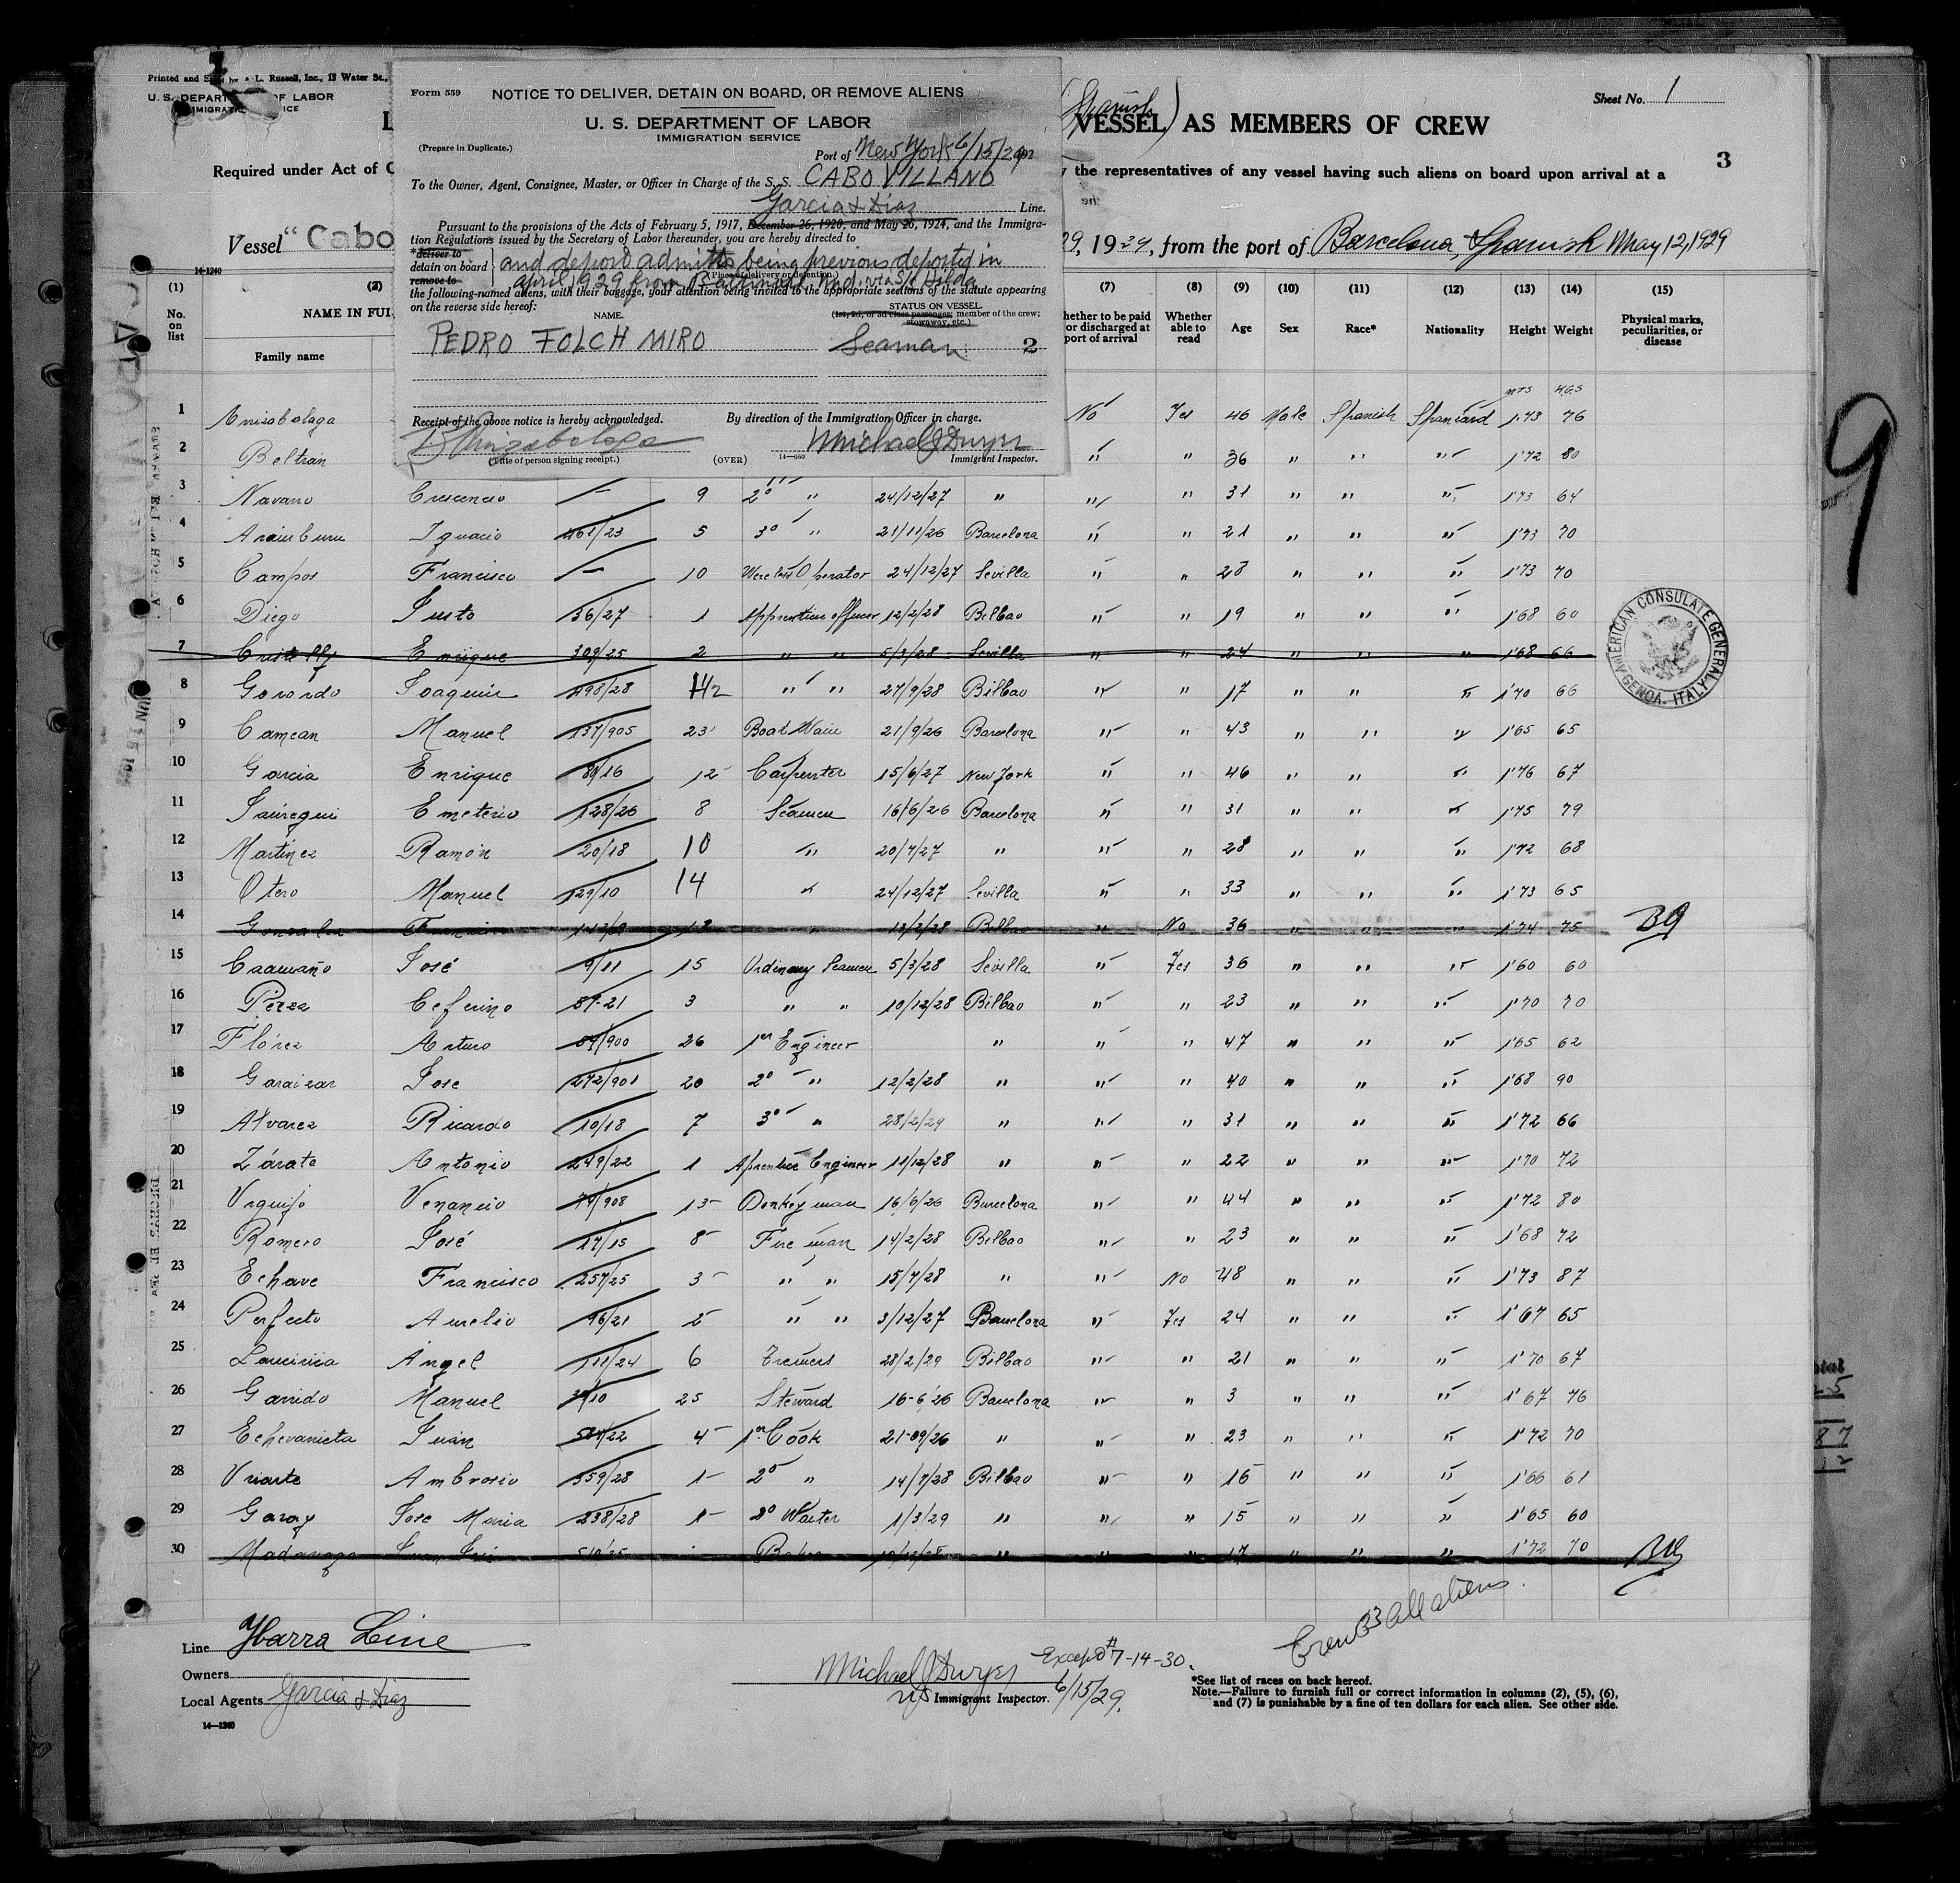 Printed and Sold by L. Russell, Inc., 13 Water St.,
U. S. DEPARTMENT OF LABOR
IMMIGRATION SERVICE
Required under Act of
Vessel "Cabo
14-1240
Form 559 NOTICE TO DELIVER, DETAIN ON BOARD, OR REMOVE ALIENS
U. S. DEPARTMENT OF LABOR
IMMIGRATION SERVICE
(Prepare in Duplicate.)
Port of New York 6/15/29, 192
To the Owner, Agent, Consignee, Master, or Officer in Charge of the S. S. CABO VILLANO
Garcia & Diaz Line.
Pursuant to the provisions of the Acts of February 5, 1917, December 26, 1920, and May 26, 1924, and the Immigra-
tion Regulations issued by the Secretary of Labor thereunder, you are hereby directed to
deliver to
detain on board
remove to
and deport admitts being previous deported in
(Place of delivery or detention.)
April 1929 from Baltimore, Md. via S/S Hilda
the following-named aliens, with their baggage, your attention being invited to the appropriate sections of the statute appearing
on the reverse side hereof:
NAME. STATUS ON VESSEL
(1st, 2d, or 3d class passenger; member of the crew; stowaway, etc.)
PEDRO FOLCH MIRO Seaman 2
Receipt of the above notice is hereby acknowledged. By direction of the Immigration Officer in charge.
Michael J Dwyer
(Title of person signing receipt.) (OVER) 14—660 Immigrant Inspector.
Sheet No. 1
(Spanish)
VESSEL AS MEMBERS OF CREW
3
the representatives of any vessel having such aliens on board upon arrival at a
29, 1929, from the port of Barcelona, Spanish May 12, 1929
(1) (2) (7) (8) (9) (10) (11) (12) (13) (14) (15)
No. on list NAME IN FUL Whether to be paid or discharged at port of arrival Whether able to read Age Sex Race* Nationality Height Weight Physical marks, peculiarities, or disease
Family name
mts Kgs
1 Amisabolaga No Yes 46 Male Spanish Spaniard 1'73 76
2 Beltran " " 36 " " " 1'72 80
3 Navarro Crescencio — 9 2º " 24/12/27 " " " 31 " " " 1'73 64
4 Aramburu Ignacio 461/23 5 3º " 21/11/26 Barcelona " " 21 " " " 1'73 70
5 Campos Francisco — 10 Wireless Operator 24/12/27 Sevilla " " 28 " " " 1'73 70
6 Diego Justo 36/27 1 Apprentice officer 12/2/28 Bilbao " " 19 " " " 1'68 60
7 Enrique 309/25 2 " " 5/3/28 Sevilla " " 24 " " " 1'68 66
8 Gorordo Joaquin 498/28 1 1/2 " " 27/9/28 Bilbao " " 17 " " " 1'70 66
9 Camean Manuel 137/905 23 Boat Wain 21/9/26 Barcelona " " 43 " " " 1'65 65
10 Garcia Enrique 80/16 12 Carpenter 15/6/27 New York " " 46 " " " 1'76 67
11 Jauregui Emeterio 128/26 8 Seamen 16/6/26 Barcelona " " 31 " " " 1'75 79
12 Martinez Ramón 20/18 10 " 20/7/27 " " " 28 " " " 1'72 68
13 Otero Manuel 129/10 14 " 24/12/27 Sevilla " " 33 " " " 1'73 65
14 Gonzalez 18 " 12/2/28 Bilbao " No 36 " " " 1'74 75
15 Caamaño José 9/11 15 Ordinary Seamen 5/3/28 Sevilla " Yes 36 " " " 1'60 60
16 Perez Ceferino 57-21 3 " " 10/12/28 Bilbao " " 23 " " " 1'70 70
17 Flórez Arturo 59/900 26 1er Engineer " " " 47 " " " 1'65 62
18 Garaizar Jose 272/901 20 2º " 12/2/28 " " " 40 " " " 1'68 90
19 Alvarez Ricardo 10/18 7 3º " 28/2/29 " " " 31 " " " 1'72 66
20 Zárate Antonio 249/22 1 Aprentice Engineer 11/12/28 " " " 22 " " " 1'70 72
21 Urquijo Venancio 74/908 15 Donkey man 16/6/26 Barcelona " " 44 " " " 1'72 80
22 Romero José 17/15 8 Fire man 14/2/28 Bilbao " " 23 " " " 1'68 72
23 Echave Francisco 257/25 3 " " 15/7/28 " " No 48 " " " 1'73 87
24 Perfecto Aurelio 96/21 2 " " 3/12/27 Barcelona " Yes 24 " " " 1'67 65
25 Laucirica Ángel 111/24 6 28/2/29 Bilbao " " 21 " " " 1'70 67
26 Garrido Manuel 25 Steward 16-6'26 Barcelona " " 3 " " " 1'67 76
27 Echevarrieta Juán 4 1er Cook 21-09/26 " " " 23 " " " 1'72 70
28 Uriarte Ambrosio 359/28 1 2º " 14/7/28 Bilbao " " 16 " " " 1'66 61
29 Garay Jose Maria 238/28 1 2º Waiter 1/3/29 " " " 15 " " " 1'65 60
30 " " " 17 " " " 1'72 70
AMERICAN CONSULATE GENERAL, GENOA. ITALY
Line Ybarra Line
Owners
Local Agents Garcia & Diaz
14—1240
Michael J Dwyer Except #7-14-30.
US Immigrant Inspector. 6/15/29.
Crew 33 all aliens.
*See list of races on back hereof.
Note.—Failure to furnish full or correct information in columns (2), (5), (6),
and (7) is punishable by a fine of ten dollars for each alien. See other side.
9